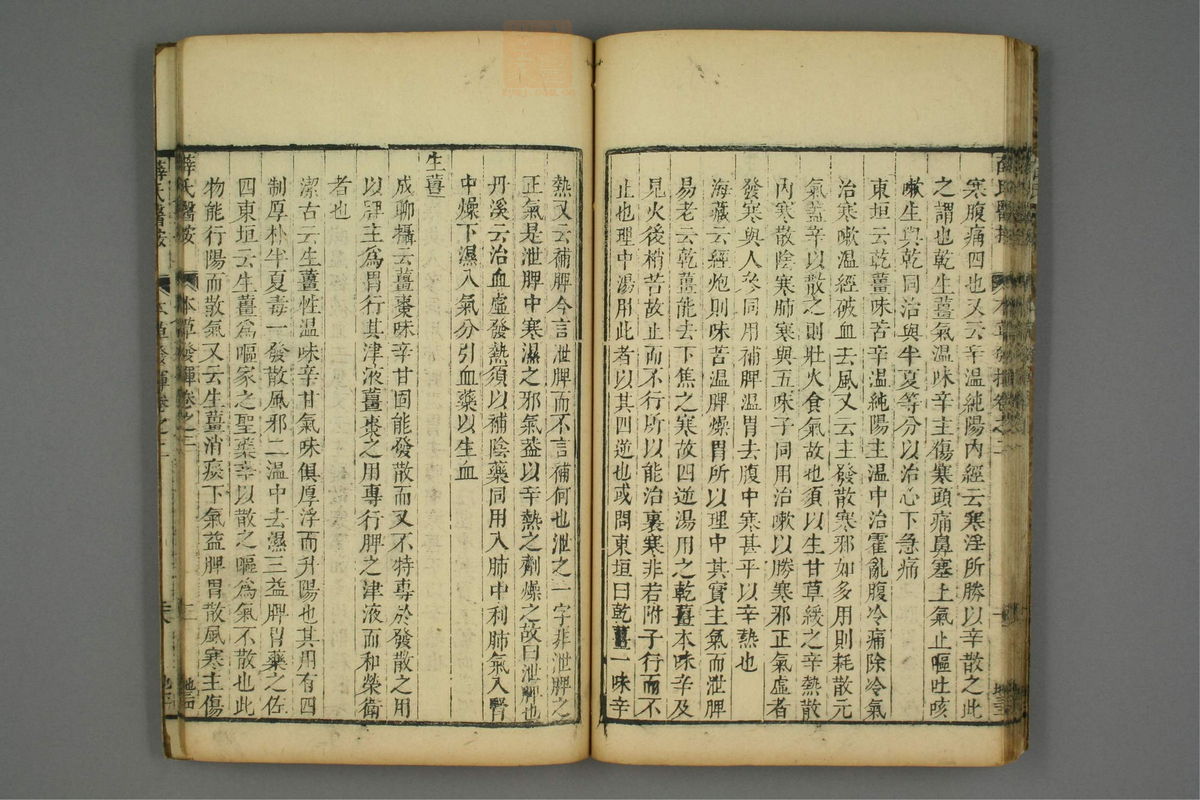 寒腹痛四也又云辛温純陽內經云寒淫所勝以辛散之此
之謂也乾生薑氣温味辛主傷寒頭痛鼻塞上氣止嘔吐咳
嗽生與乾同治與半夏等分以治心下急痛
東垣云乾薑味苦辛温純陽主温中治霍亂腹冷痛除冷氣
治寒嗽温經破血去風又云主發散寒邪如多用則耗散元
氣蓋辛以散之則壯火食氣故也須以生甘草緩之辛熱散
內寒散陰寒肺寒與五味子同用治嗽以勝寒邪正氣虛者
發寒與人參同用補脾温胃去腹中寒甚平以辛熱也
海藏云經炮則味苦温脾燥胃所以理中其實主氣而泄脾
易老云乾薑能去下焦之寒故四逆湯用之乾薑本味辛及
見火後稍苦故止而不行所以能治裏寒非若附子行而不
止也理中湯用此者以其四逆也或問東垣曰乾薑一味辛
熱又云補脾今言泄脾而不言補何也泄之一字非泄脾之
正氣是泄脾中寒濕之邪氣益以辛熱之劑燥之故曰泄脾也
丹溪云治血虛發熱須以補陰藥同用入肺中利肺氣入腎
中燥下濕入氣分引血藥以生血
生薑
成聊攝云薑棗味辛甘固能發散而又不特專於發散之用
以脾主為胃行其津液薑棗之用專行脾之津液而和榮衛
者也
潔古云生薑性温味辛甘氣味俱厚浮而升陽也其用有四
制厚朴半夏毒一發散風邪二温中去濕三益脾胃藥之佐
四東垣云生薑為嘔家之聖藥辛以散之嘔為氣不散也此
物能行陽而散氣又云生薑消痰下氣益脾胃散風寒主傷
薛氏醫按 本草發揮卷之三